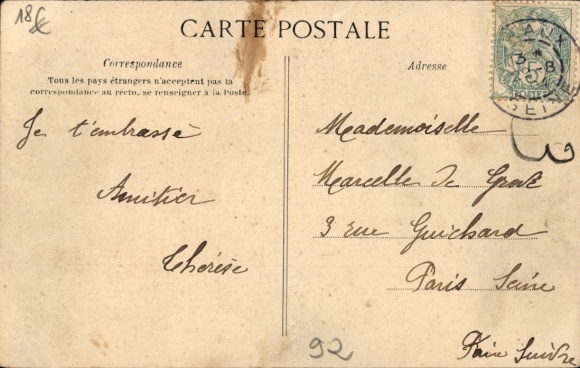 18€
CARTE POSTALE
Correspondance
Tous les pays étrangers n'acceptent pas la
correspondance au recto, se renseigner à la Poste.
Adresse
Je t'embrasse
Amitier
Thérèse
Mademoiselle
Marcelle de
3 rue Guichard
Paris Seine
Faire Suivre
92
SEINE